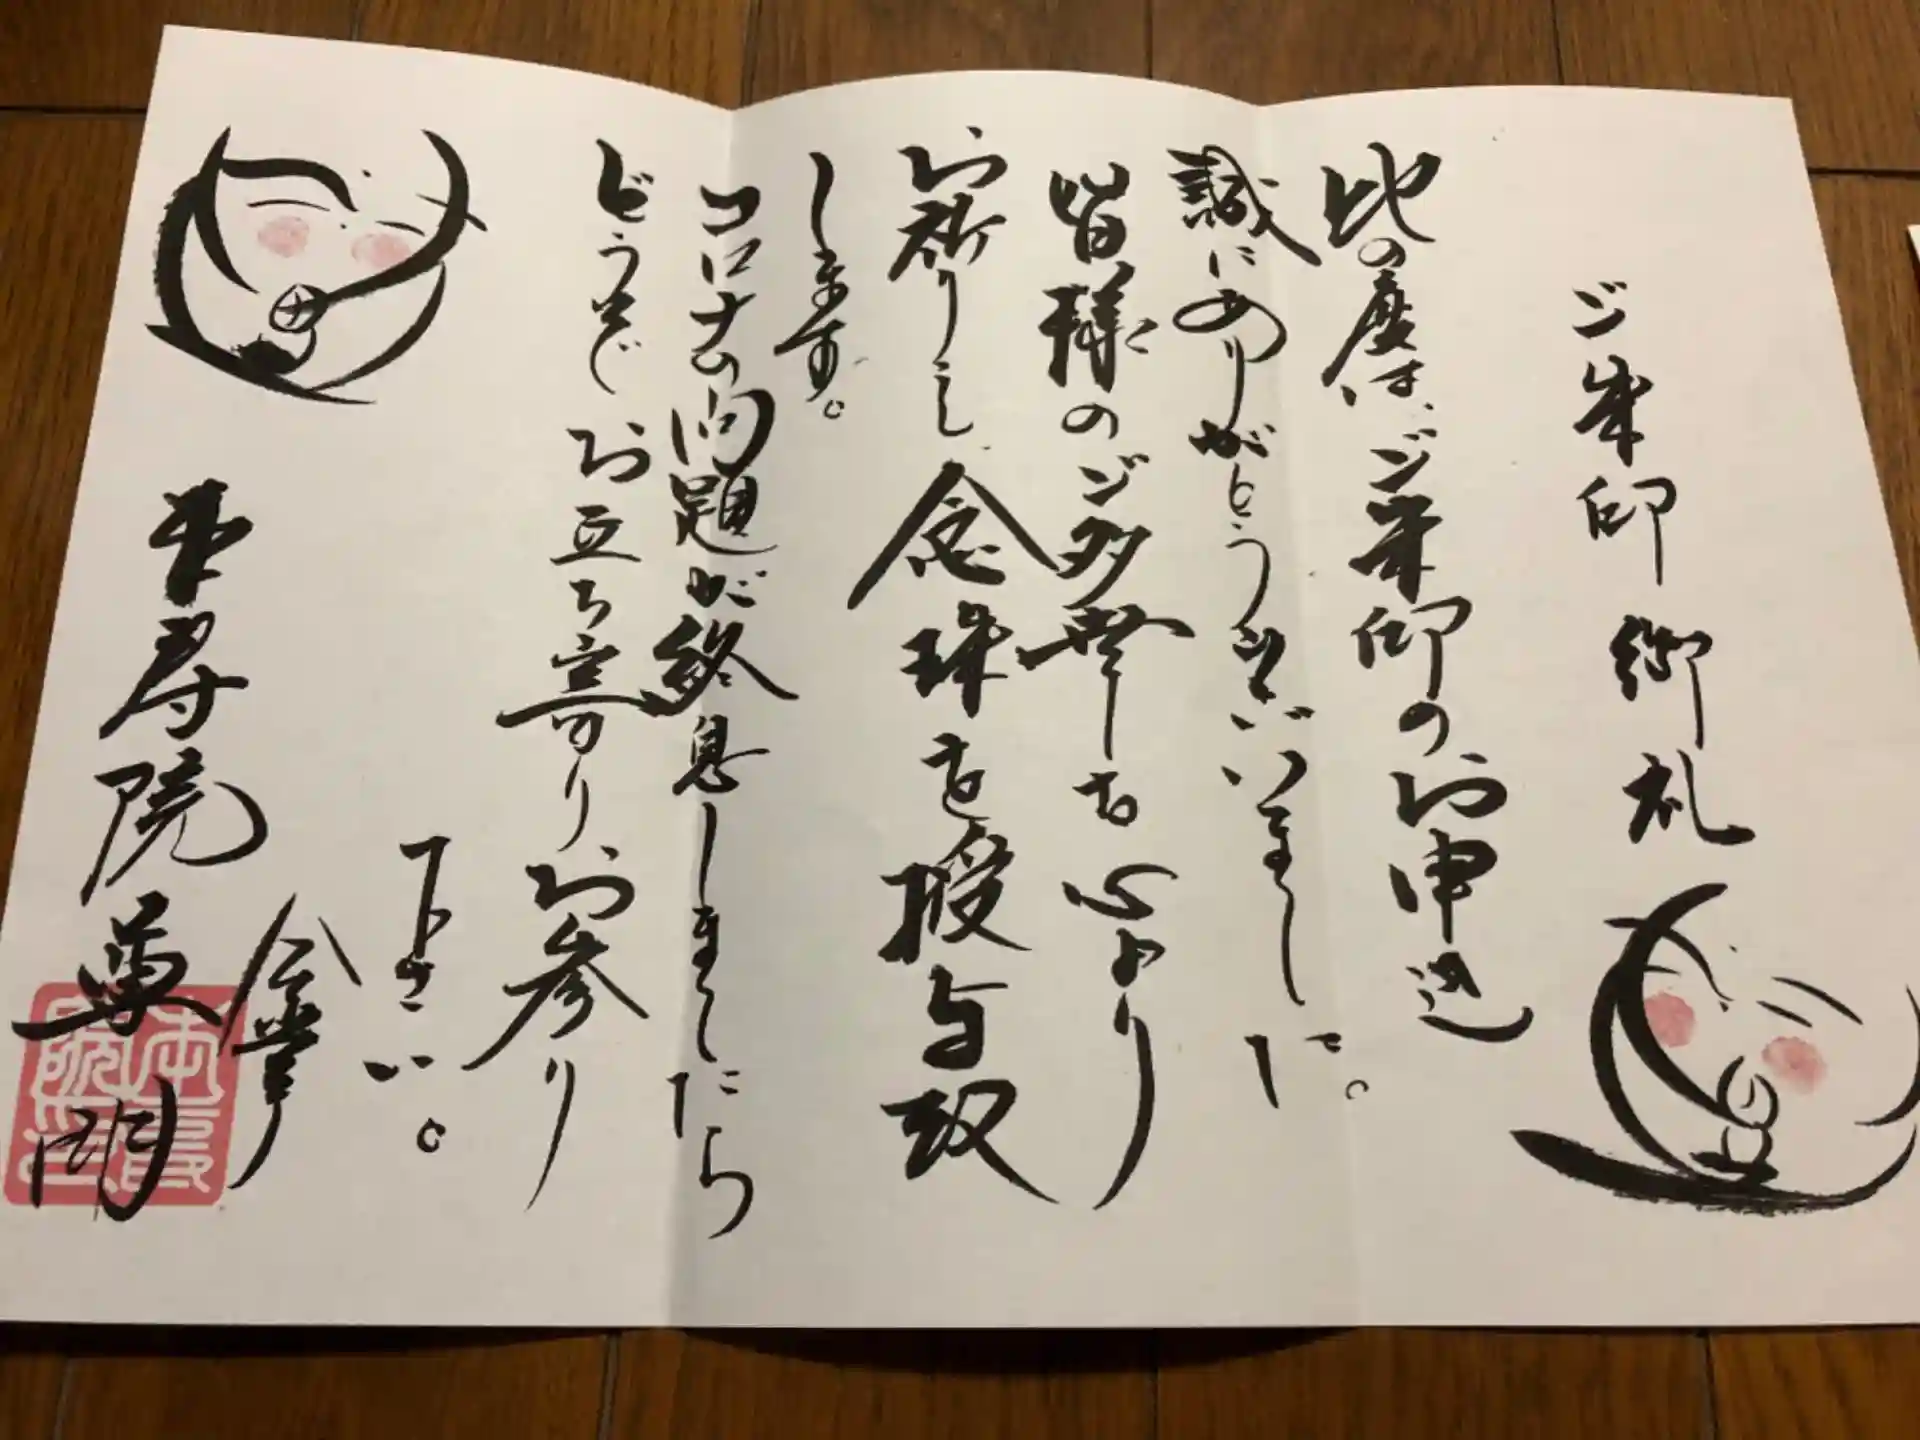 ご朱印 御礼
此の度は、ご朱印のお申込
誠にありがとうございました。
皆様のご多幸を心より
お祈りし念珠を授与致
します。
コロナの問題が終息しましたら
どうぞお立ち寄りお参り
下さい。
合掌
本寿院 尊明
本寿院